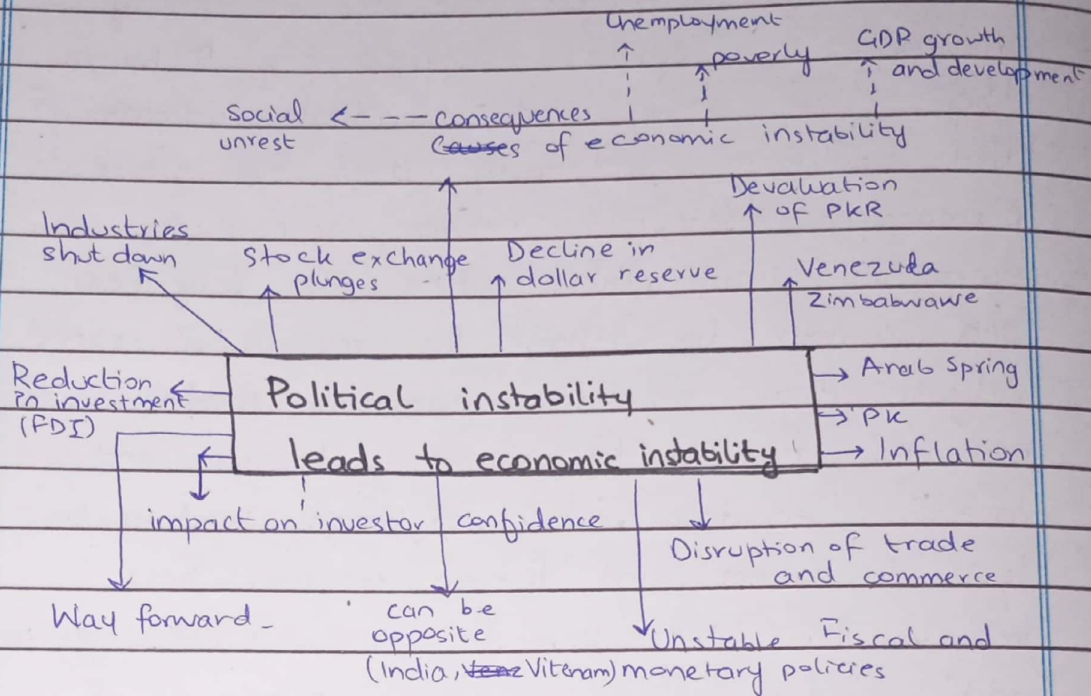 Unemployment
poverly
GDP growth
and development
Social
unrest
consequences
Causes of economic instability
Devaluation
of PKR
Industries
shut down
Stock exchange
plunges
Decline in
dollar reserve
Venezuda
Zimbabwawe
Reduction
in investment
(FDI)
Political instability
leads to economic instability
Arab Spring
PK
Inflation
impact on investor confidence
Disruption of trade
and commerce
Way forward -
can be
opposite
(India, Venz Vitenam)
Unstable Fiscal and
monetary policies